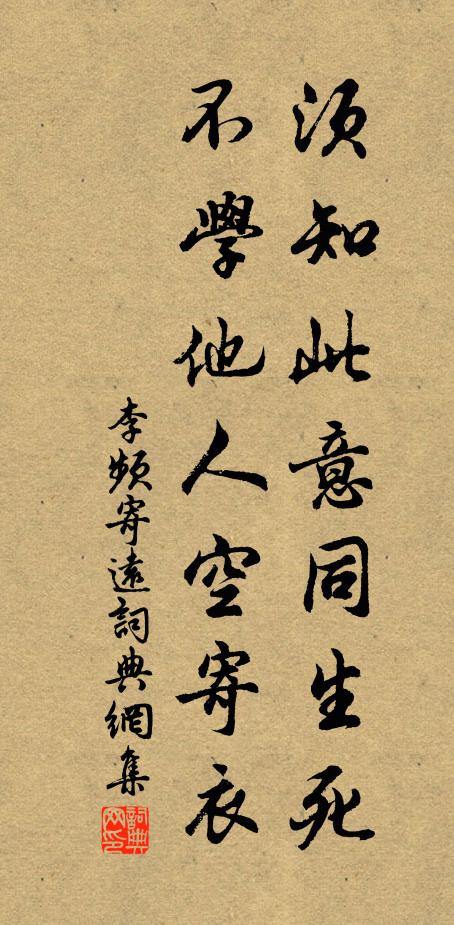 須知此意同生死
不學他人空寄衣
李頻寄遠詞典網集
詞典
网印